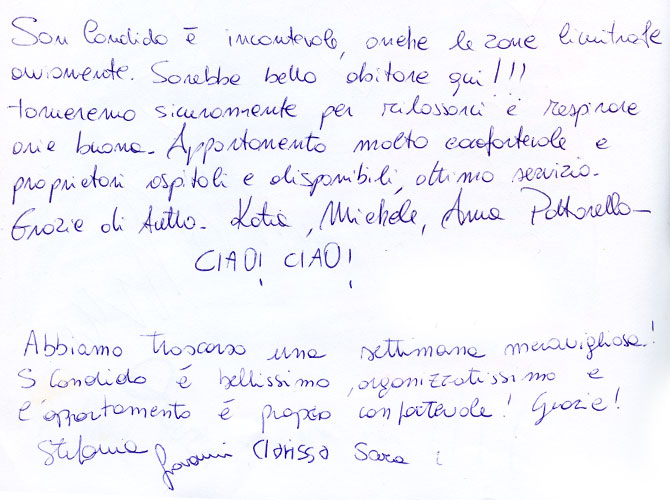 San Candido è incantevole, anche le zone limitrofe
ovviamente. Sarebbe bello abitare qui!!!
torneremo sicuramente per rilassarci e respirare
aria buona. Appartamento molto confortevole e
proprietari ospitali e disponibili, ottimo servizio.
Grazie di tutto. Katia, Michele, Anna Pattarello
CIAO! CIAO!
Abbiamo trascorso una settimana meravigliosa!
S Candido è bellissimo, organizzatissimo e
l'appartamento è proprio confortevole! Grazie!
Stefania Giovanni Clarissa Sara